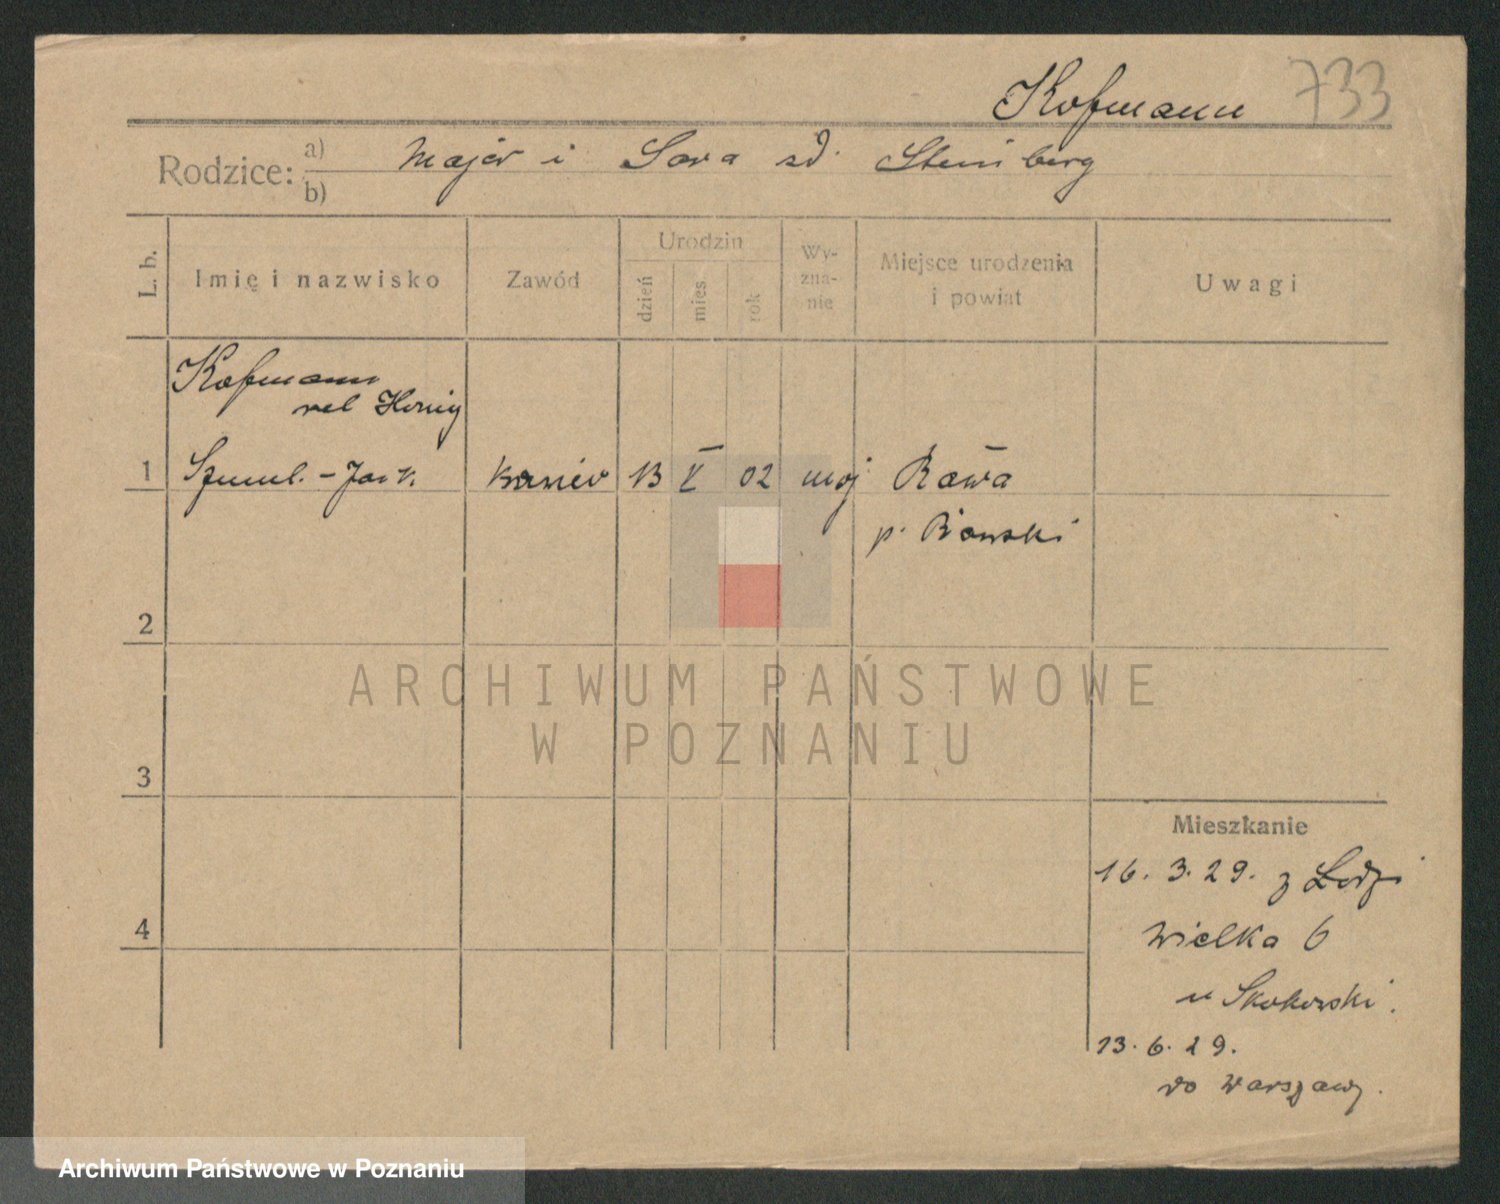 Kofmann 733
Rodzice: a) Majer i Sara zd. Steinberg
b)
L. b. Imię i nazwisko Zawód Urodzin dzień mies rok Wy-zna-nie Miejsce urodzenia i powiat Uwagi
Kofmann
vel Honig
1 Szmul. - 13 V 02 moj Rawa
p. Rawski
2
ARCHIWUM PAŃSTWOWE
W POZNANIU
3
Mieszkanie
16. 3. 29. z Lodzi
Wielka 6
u Skokowski.
4
13. 6. 29.
do Warszawy.
Archiwum Państwowe w Poznaniu